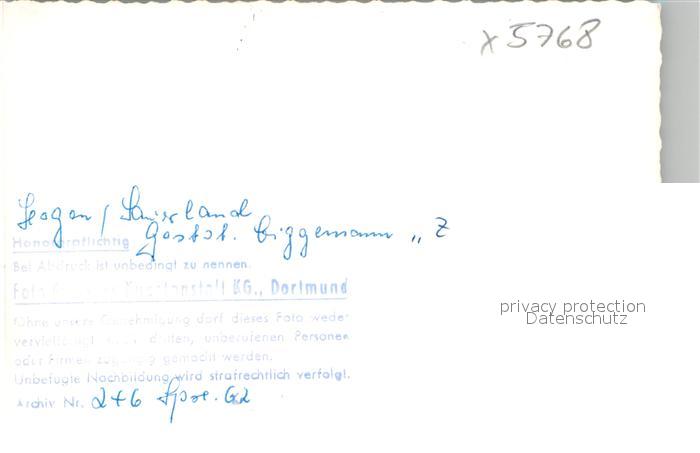 x 5768
Hagen / Sauerland
Gastst. Biggemann „ Z
Honorarpflichtig
Bei Abdruck ist unbedingt zu nennen.
Foto Kunstanstalt KG., Dortmund
Ohne unsere Genehmigung darf dieses Foto weder
vervielfältigt dritten, unberufenen Personen
oder Firmen zugängig gemacht werden.
Unbefugte Nachbildung wird strafrechtlich verfolgt.
Archiv Nr. 246 62
privacy protection
Datenschutz